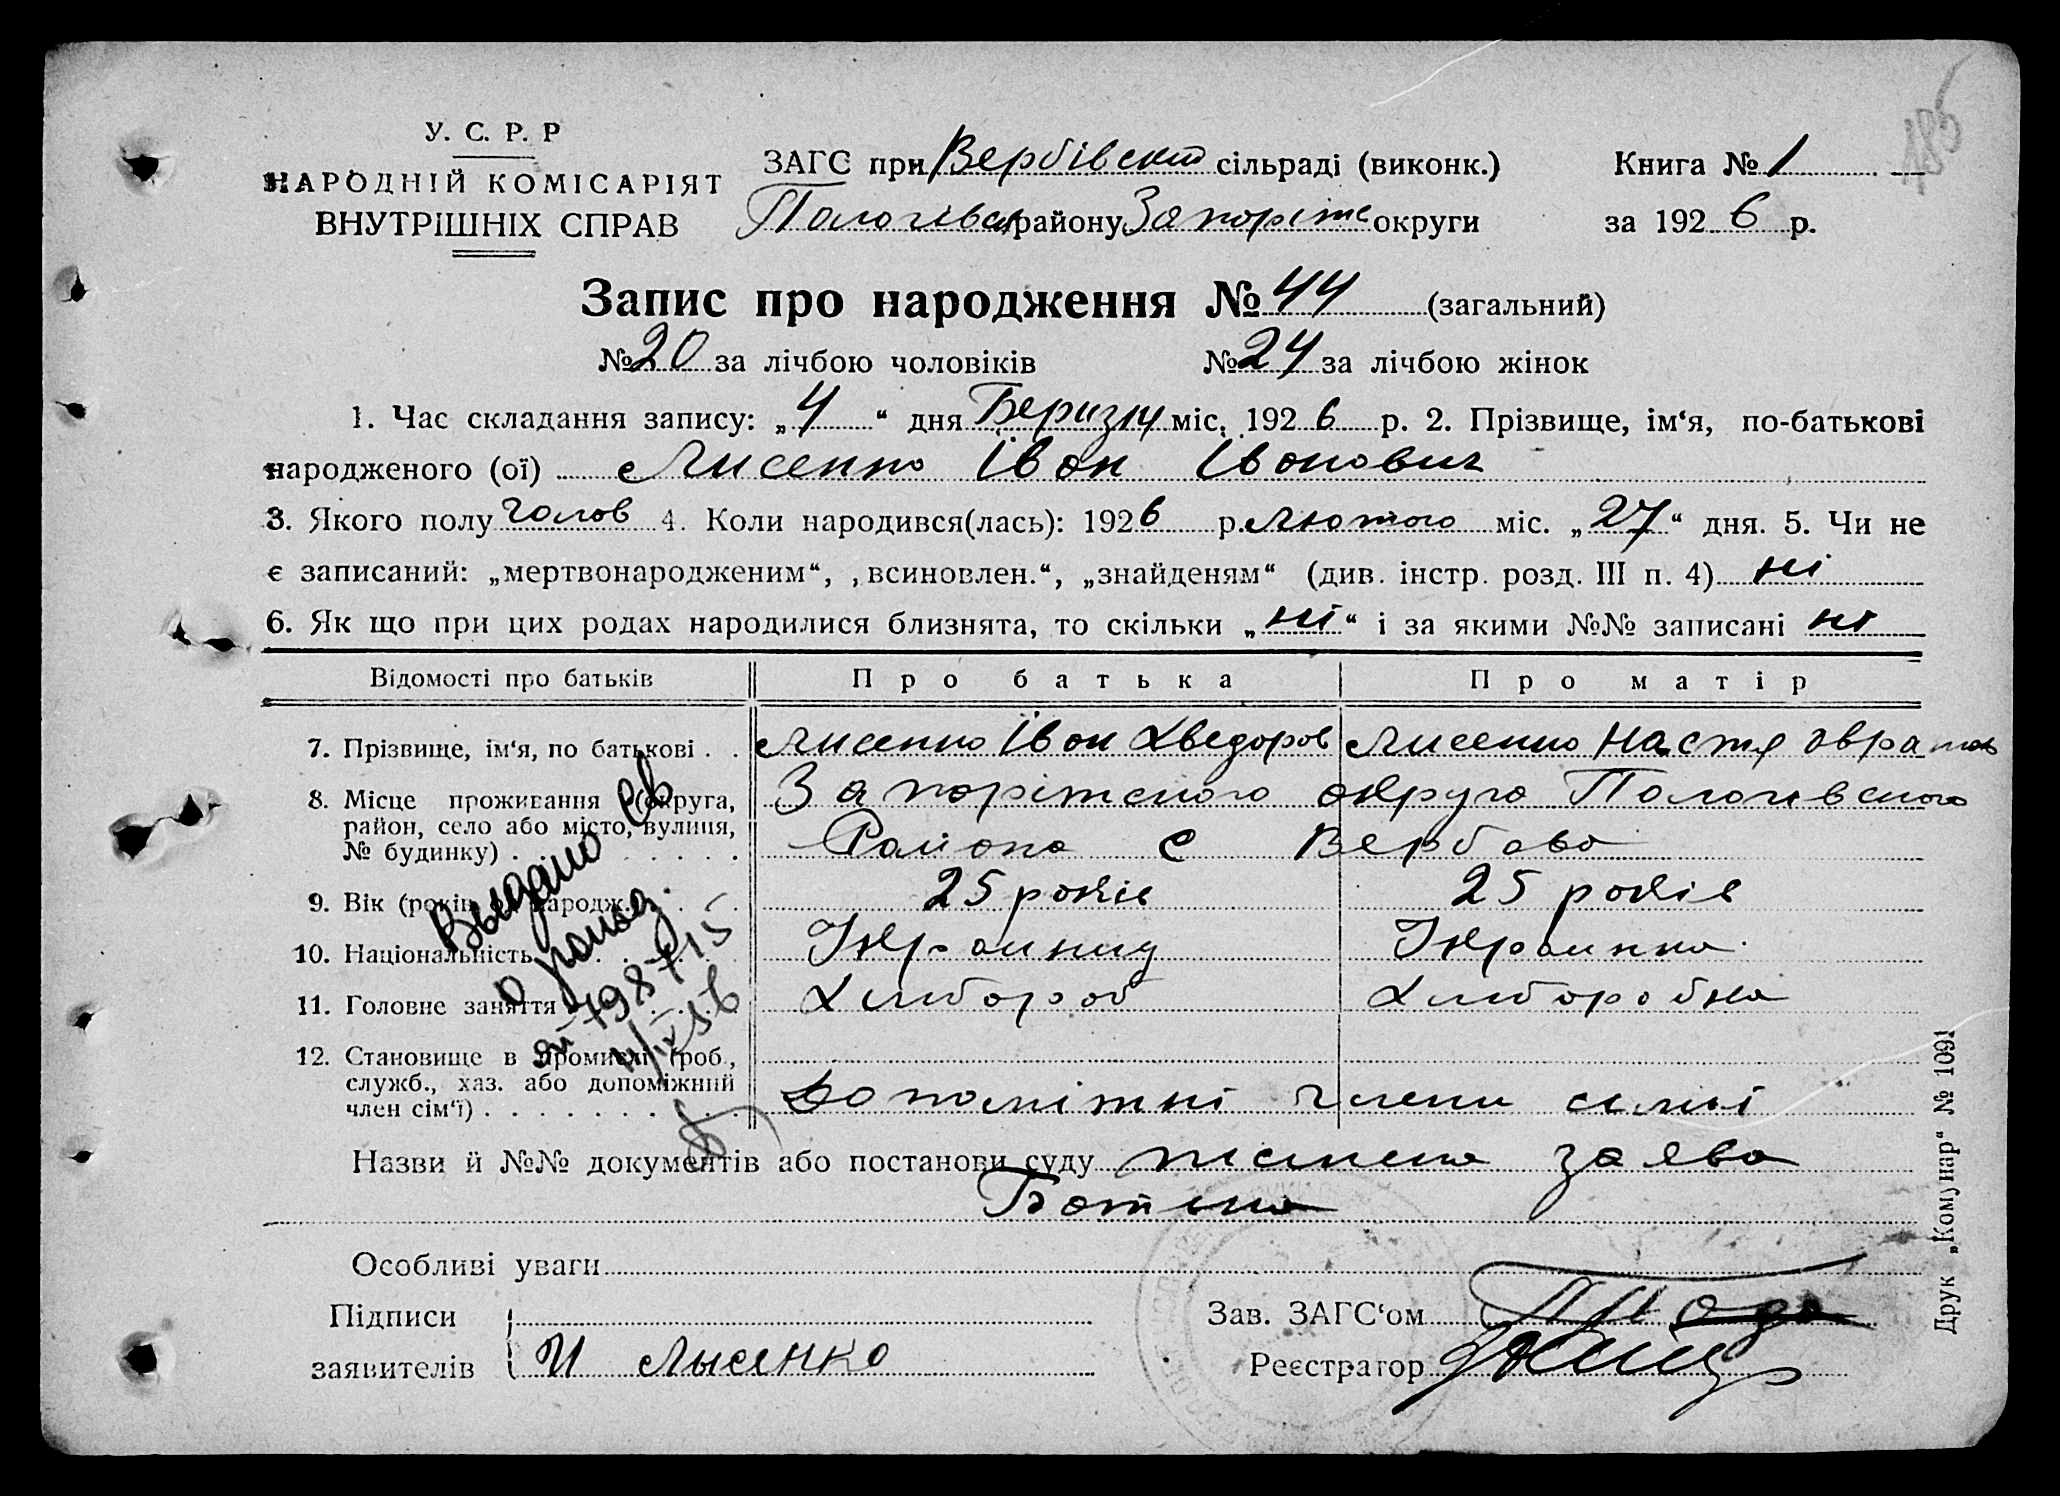 185
У. С. Р. Р
НАРОДНІЙ КОМІСАРІЯТ
ВНУТРІШНІХ СПРАВ
ЗАГС при Вербівскій сільраді (виконк.)
Пологівск району Запоріжс округи
Книга № 1
за 1926 р.
Запис про народження № 44 (загальний)
№ 20 за лічбою чоловіків № 24 за лічбою жінок
1. Час складання запису: „4“ дня Беризня міс. 1926 р. 2. Прізвище, ім‘я, по-батькові
народженого (ої) Лисенко Іван Іванович
3. Якого полу чолов 4. Коли народився(лась): 1926 р. лютого міс. „27“ дня. 5. Чи не
є записаний: „мертвонародженим“, „всиновлен.“, „знайденям“ (див. інстр. розд. III п. 4) ні
6. Як що при цих родах народилися близнята, то скільки „ні“ і за якими №№ записані ні
Відомості про батьків Про батька Про матір
7. Прізвище, ім‘я, по батькові . . Лисенко Іван Хведоров Лисенко Настя
8. Місце проживання (округа,
район, село або місто, вулиця,
№ будинку) . . . . . . Запоріжського округа Пологивского
Района с Вербово
9. Вік (років од народж.) . . . 25 років 25 років
10. Національність . . . . Украинец Украинка
11. Головне заняття . . . . Хлибороб Хлиборобка
12. Становище в промислі (роб.,
служб., хаз. або допоміжний
член сім‘ї) . . . . . . . . . . Допоміжні члени симьі
Выдано св
о рожд.
798715
Назви й №№ документів або постанови суду писмена заява
Батька
Особливі уваги
Підписи
заявителів И Лысенко
Зав. ЗАГС‘ом
Реєстратор
Друк „Комунар“ № 1091